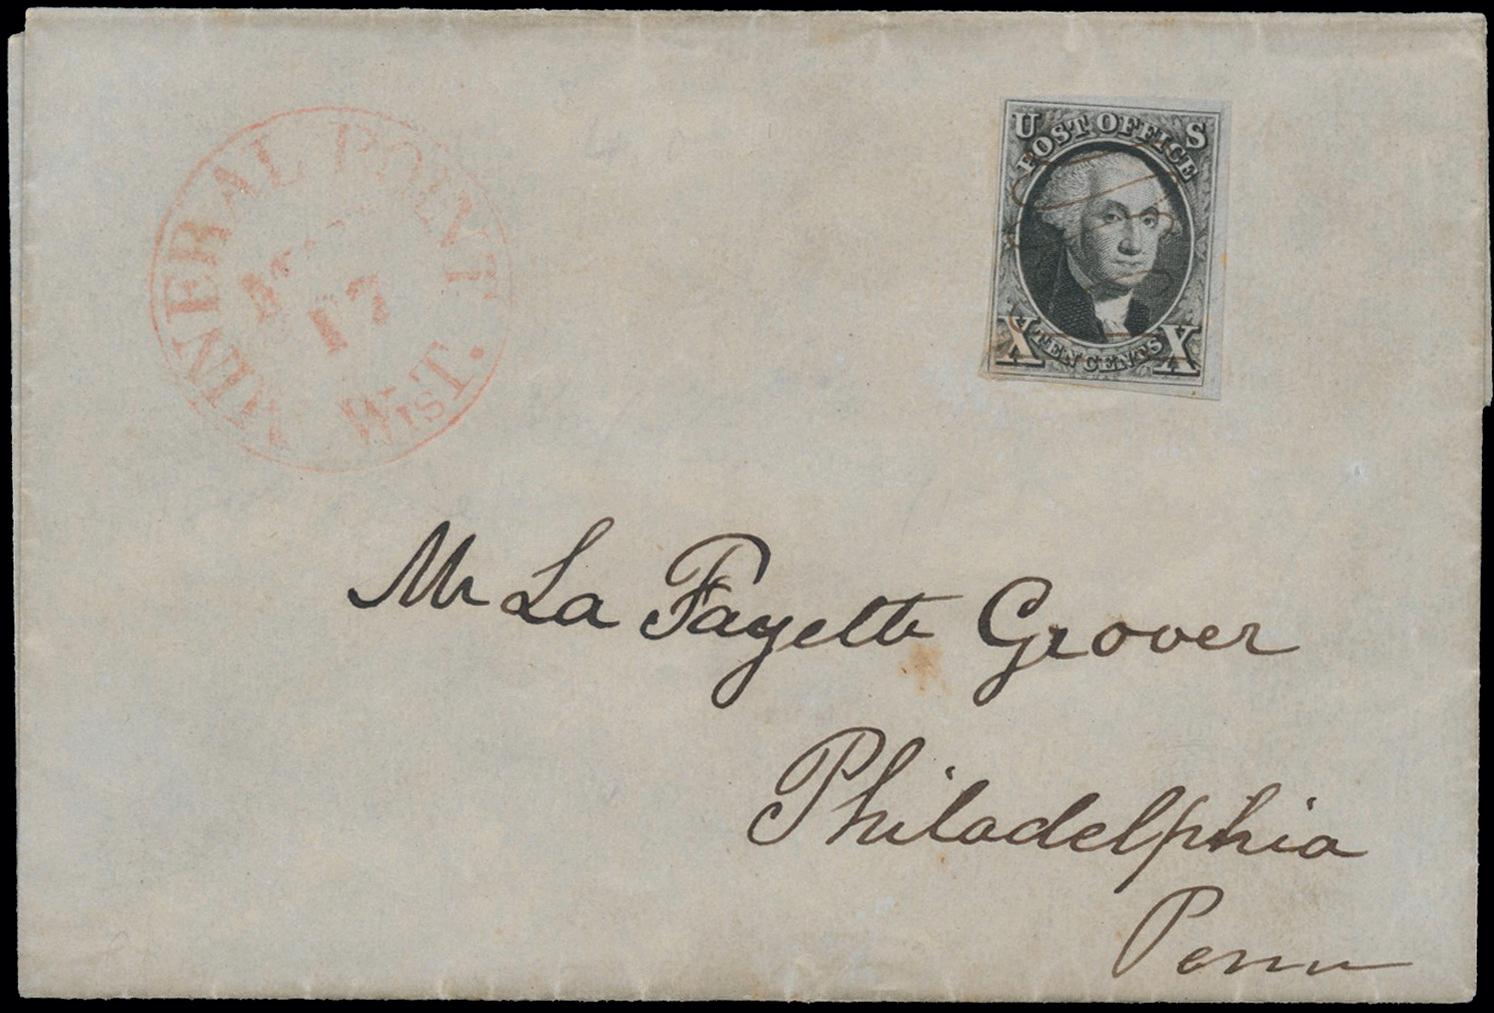 MINERAL POINT
17
WIST.
U S
POST OFFICE
X TEN CENTS X
Mr La Fayette Grover
Philadelphia
Penn